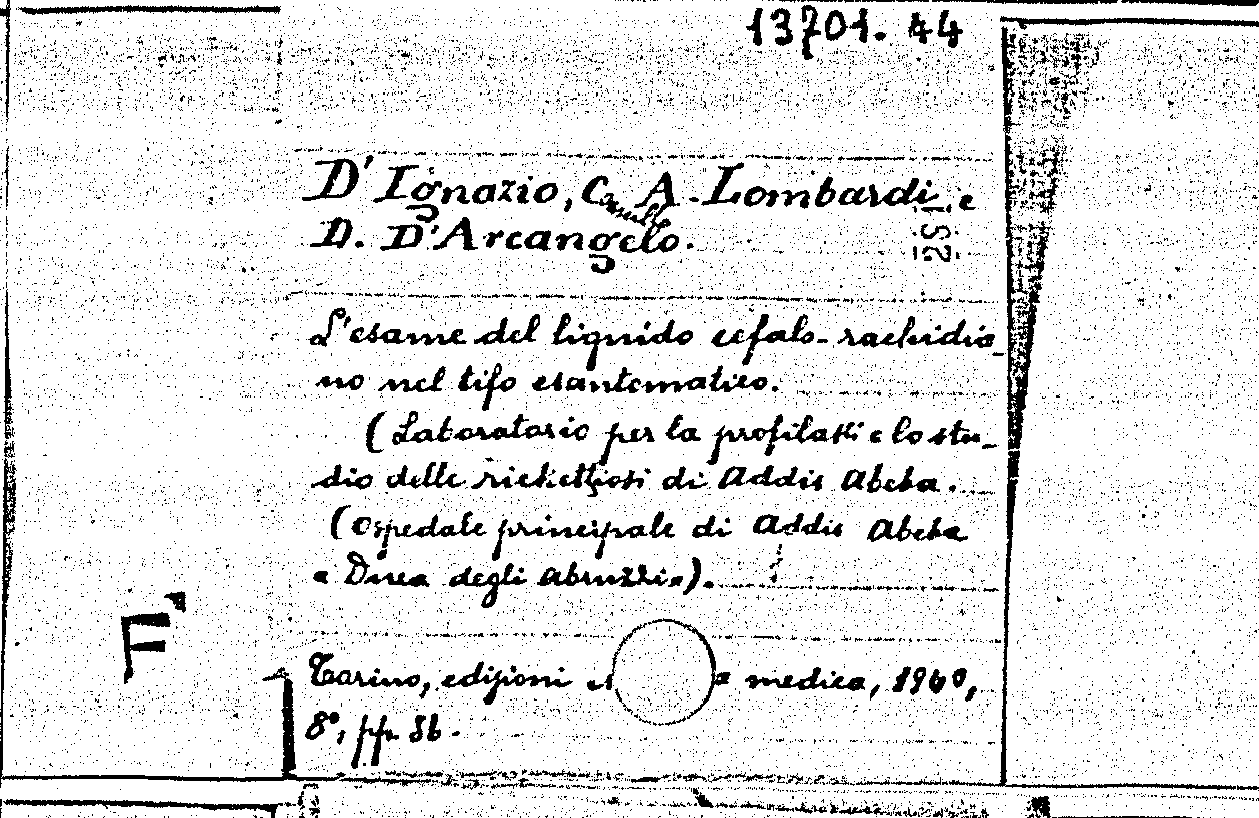 13701. 44
D'Ignazio, Camillo A. Lombardi e
D. D'Arcangelo.
L'esame del liquido cefalo-rachidia-
no nel tifo esantematico.
(Laboratorio per la profilassi e lo stu-
dio delle rickettiosi di Addis Abeba.
(Ospedale principale di Addis Abeba
"Duca degli Abruzzi").
F
Torino, edizioni medica, 1940,
8°, pp. 36.